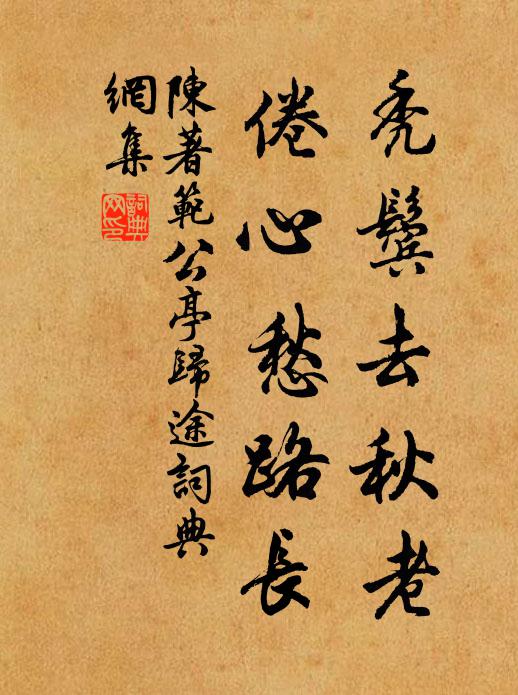 秃鬓去秋老
倦心愁路長
陳著範公亭歸途詞典
網集
詞典
网印